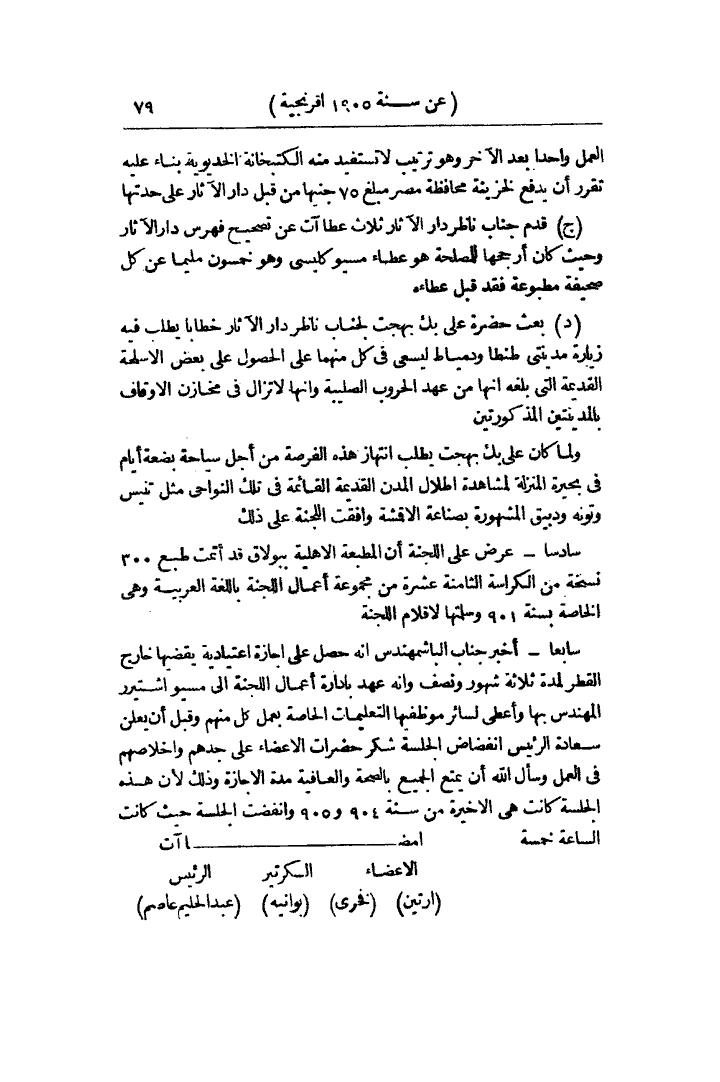 (عن سنة ١٩٠٥ افرنجية) ٧٩
العمل واحدا بعد الآخر وهو ترتيب لاتستفيد منه الكتبخانة الخديوية بناء عليه
تقرر أن يدفع لخزينة محافظة مصر مبلغ ٧٥ جنيها من قبل دار الآثار على حدتها
(ج) قدم جناب ناظر دار الآثار ثلاث عطاآت عن تصحيح فهرس دار الآثار
وحيث كان أرجحها للمصلحة هو عطاء مسيو كليسى وهو خمسون مليما عن كل
صحيفة مطبوعة فقد قبل عطاءه
(د) بعث حضرة على بك بهجت لجناب ناظر دار الآثار خطابا يطلب فيه
زيارة مدينتى طنطا ودمياط ليسعى فى كل منهما على الحصول على بعض الاسلحة
القديمة التى بلغه انها من عهد الحروب الصليبية وانها لاتزال فى مخازن الاوقاف
بالمدينتين المذكورتين
ولما كان على بك بهجت يطلب انتهاز هذه الفرصة من أجل سياحة بضعة أيام
فى بحيرة المنزلة لمشاهدة اطلال المدن القديمة القائمة فى تلك النواحى مثل تنيس
وتونه ودبيق المشهورة بصناعة الاقشة وافقت اللجنة على ذلك
سادسا - عرض على اللجنة أن المطبعة الاهلية ببولاق قد أتمت طبع ٣٠٠
نسخة من الكراسة الثامنة عشرة من مجموعة أعمال اللجنة باللغة العربية وهى
الخاصة بسنة ٩٠١ وسلمتها لاقلام اللجنة
سابعا - أخبر جناب الباشمهندس انه حصل على اجازة اعتيادية يقضيها خارج
القطر لمدة ثلاثة شهور ونصف وانه عهد بادارة أعمال اللجنة الى مسيو اشتيرر
المهندس بها وأعطى لسائر موظفيها التعليمات الخاصة بعمل كل منهم وقبل أن يعلن
سعادة الرئيس انفضاض الجلسة شكر حضرات الاعضاء على جدهم واخلاصهم
فى العمل وسأل الله أن يمتع الجميع بالصحة والعافية مدة الاجازة وذلك لأن هذه
الجلسة كانت هى الاخيرة من سنة ٩٠٤ و ٩٠٥ وانفضت الجلسة حيث كانت
الساعة خمسة امضاآت
الاعضاء السكرتير الرئيس
(ارتين) (فخرى) (بوانيه) (عبدالحليم عاصم)